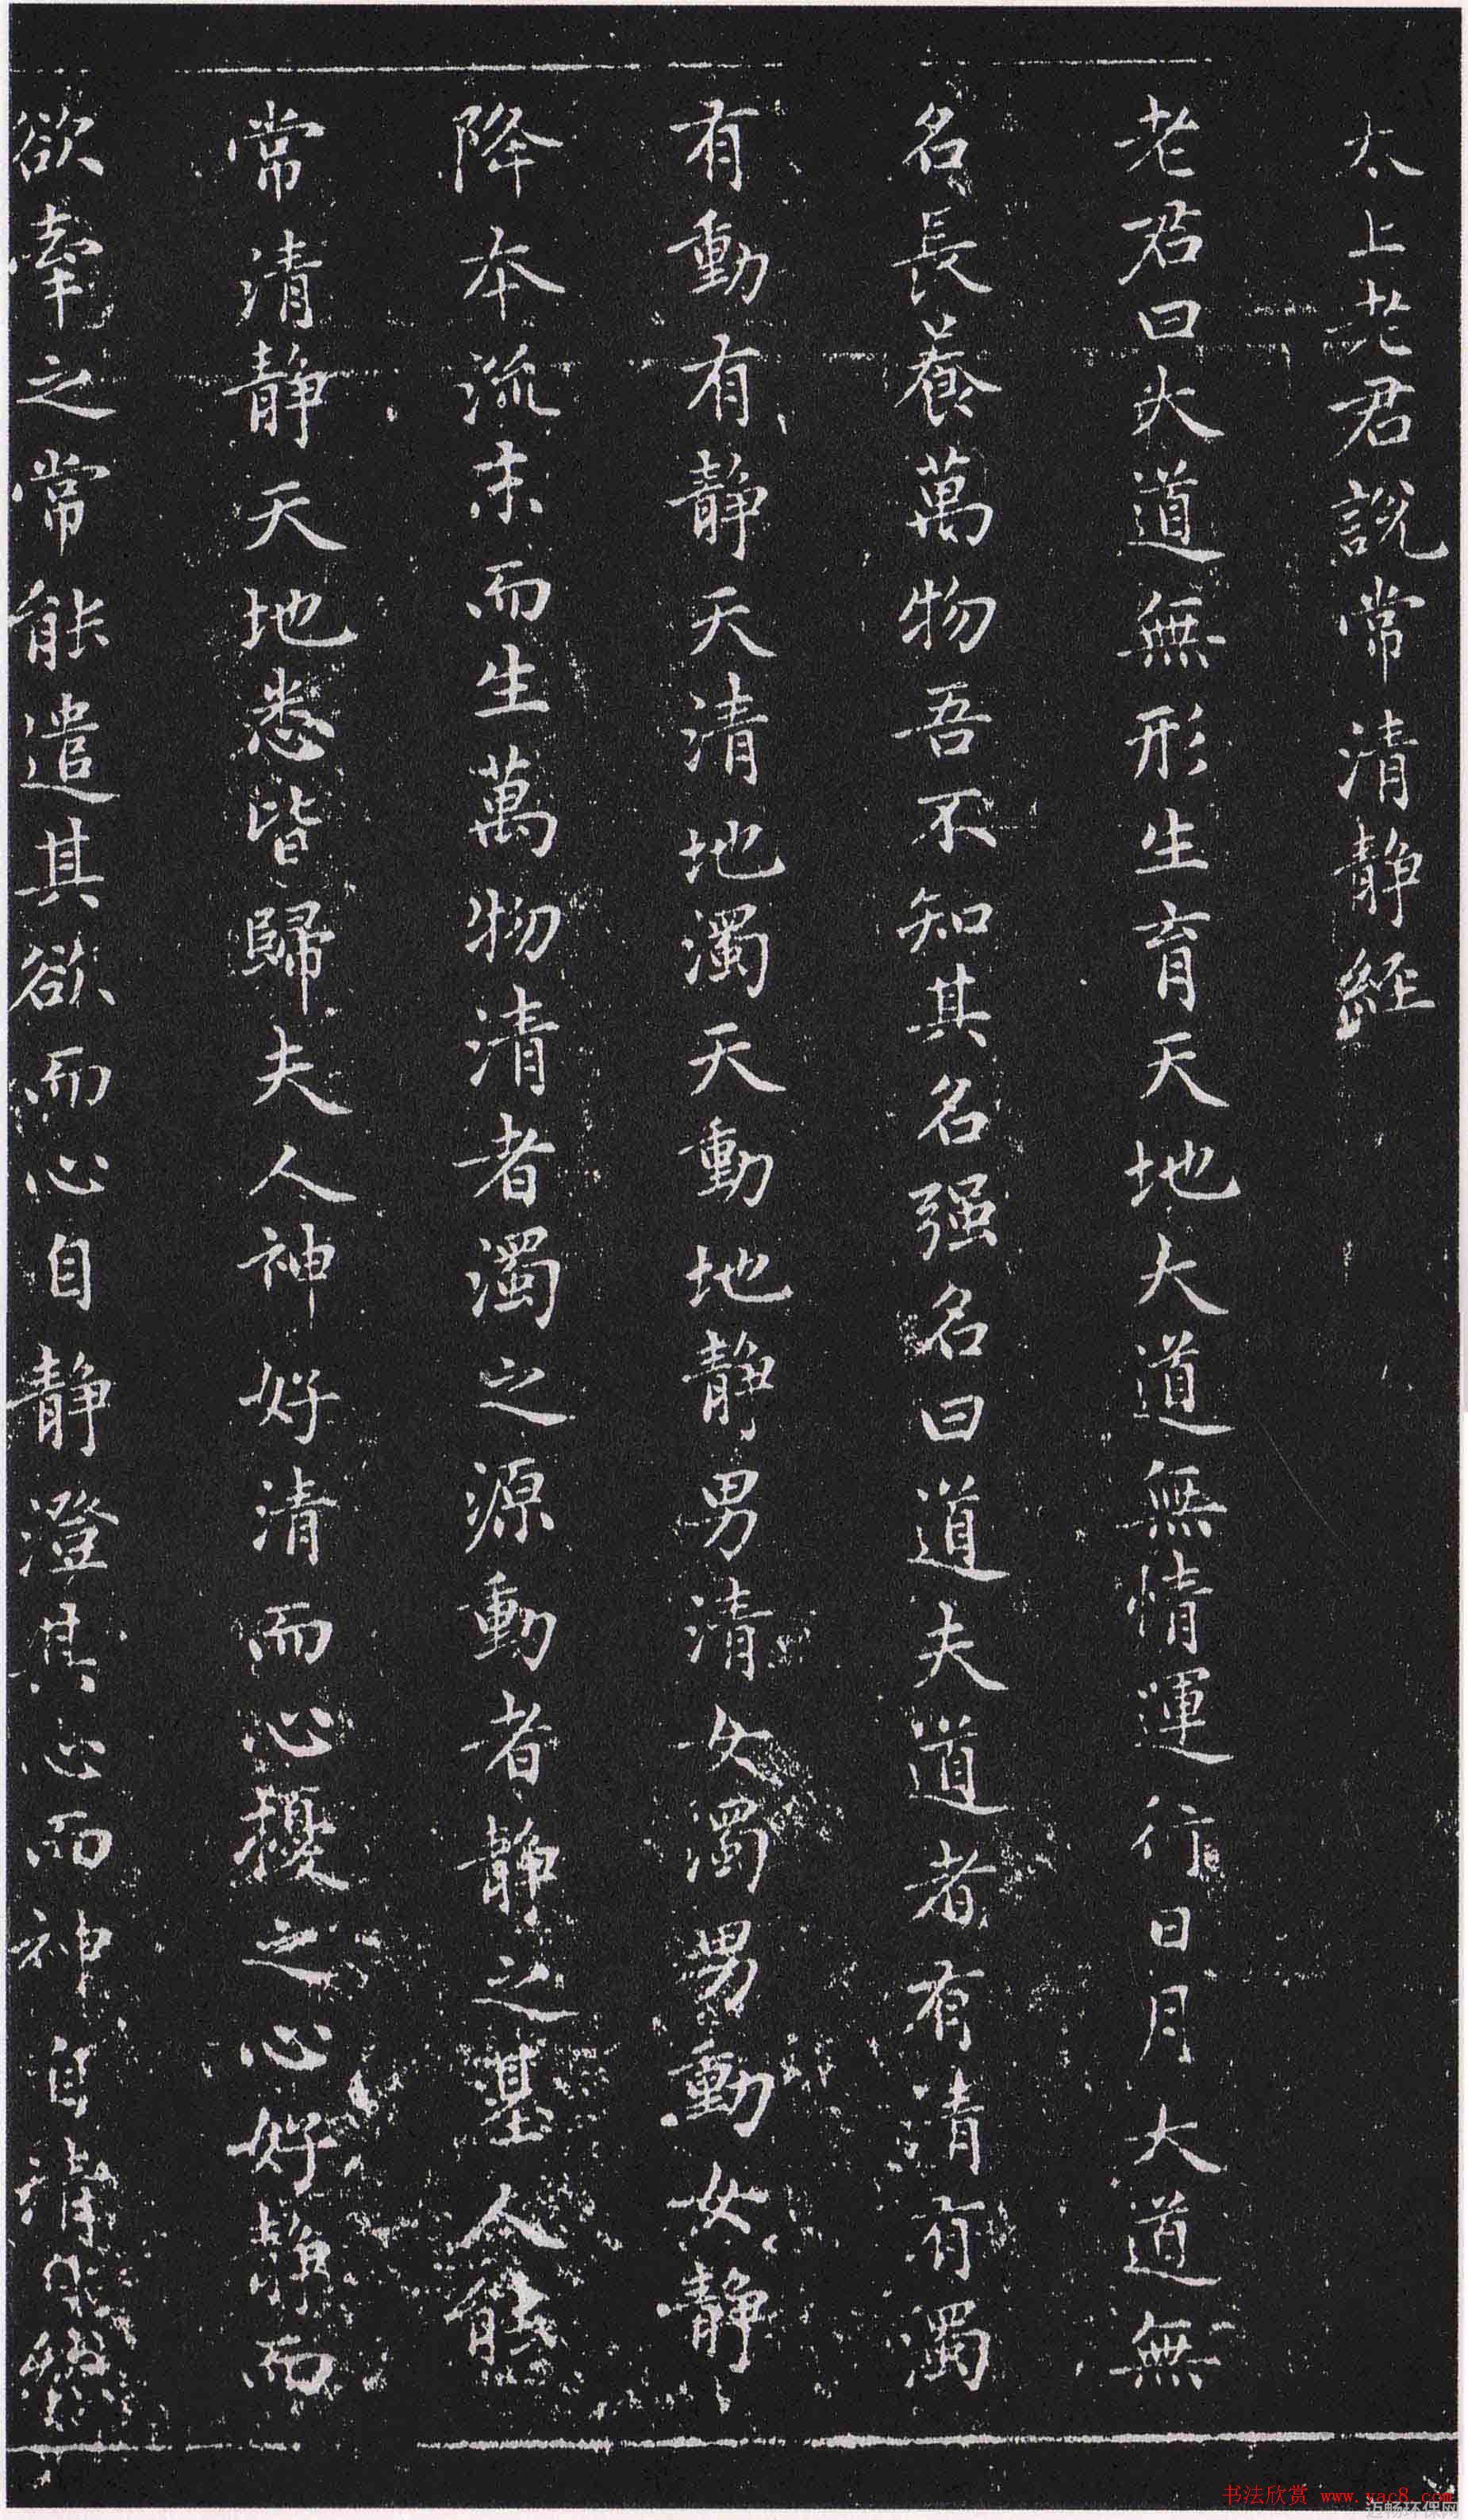 太上老君說常清靜經
老君曰大道無形生育天地大道無情運行日月大道無
名長養萬物吾不知其名强名曰道夫道者有清有濁
有動有靜天清地濁天動地靜男清女濁男動女靜
降本流末而生萬物清者濁之源動者靜之基人能
常清靜天地悉皆歸夫人神好清而心擾之心好靜而
欲牽之常能遣其欲而心自靜澄其心而神自清
书法欣赏 www.yac8.com
迈畅环保网